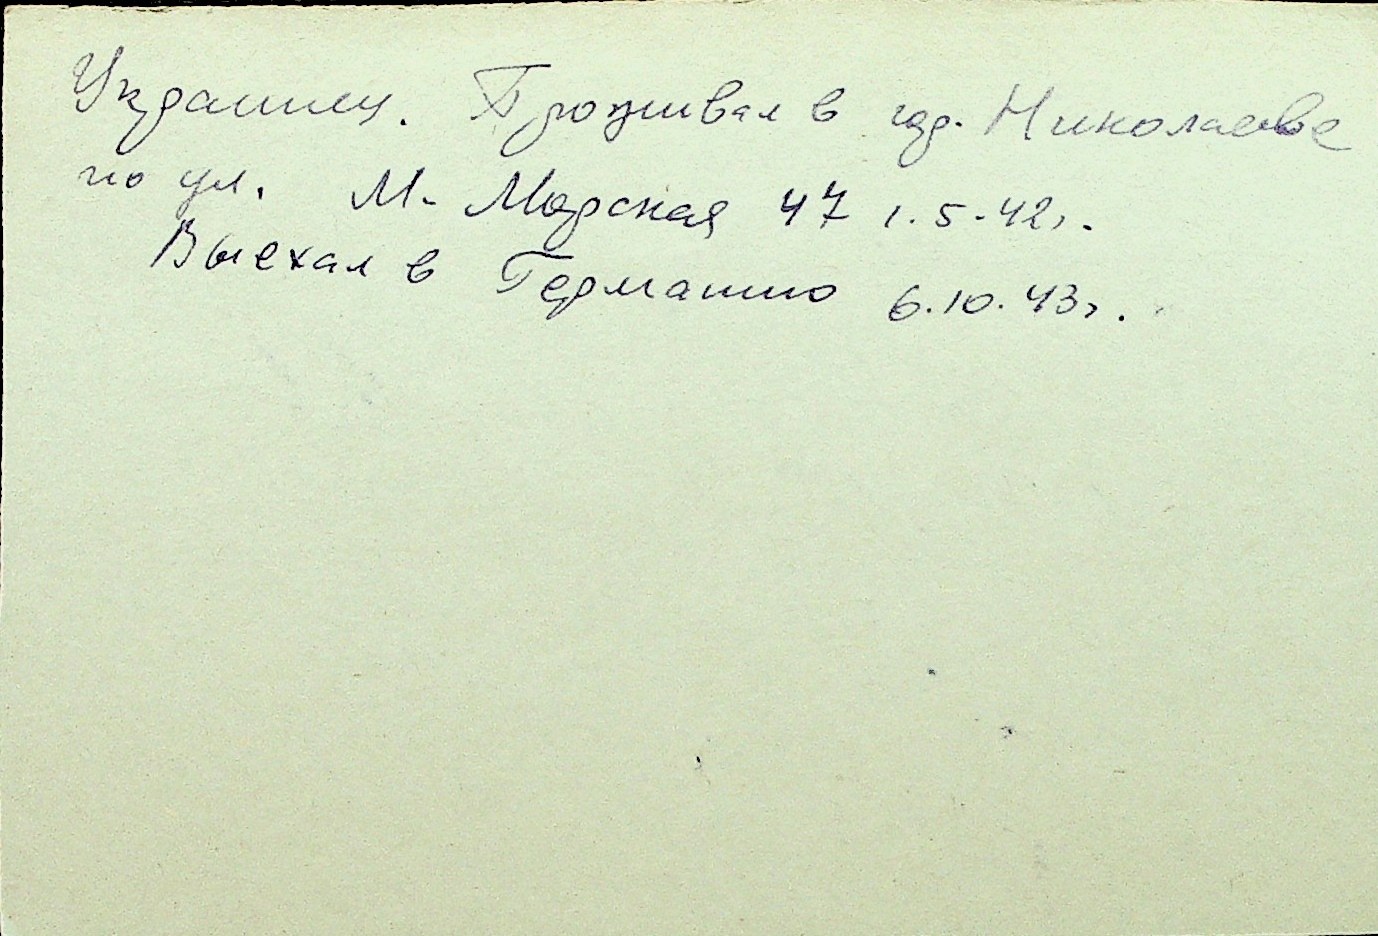 Украинец. Проживал в гор. Николаеве
по ул. М. Морская 47 1.5.42г.
Выехал в Германию 6.10.43г.